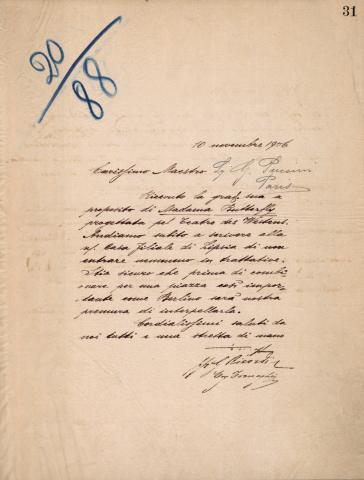 31
20/88
10 novembre 1906
Carissimo Maestro Sg G. Puccini
Paris
Ricevuto la grad. sua a
proposito di Madama Butterfly
progettata pel Teatro des Westens.
Andiamo subito a scrivere alla
ns/ Casa filiale di Lipsia di non
entrare nemmeno in trattative.
Stia sicuro che prima di combi
nare per una piazza così impor
tante come Berlino sarà nostra
premura di interpellarla.
Cordialissimi saluti da
noi tutti e una stretta di mano
Ricordi